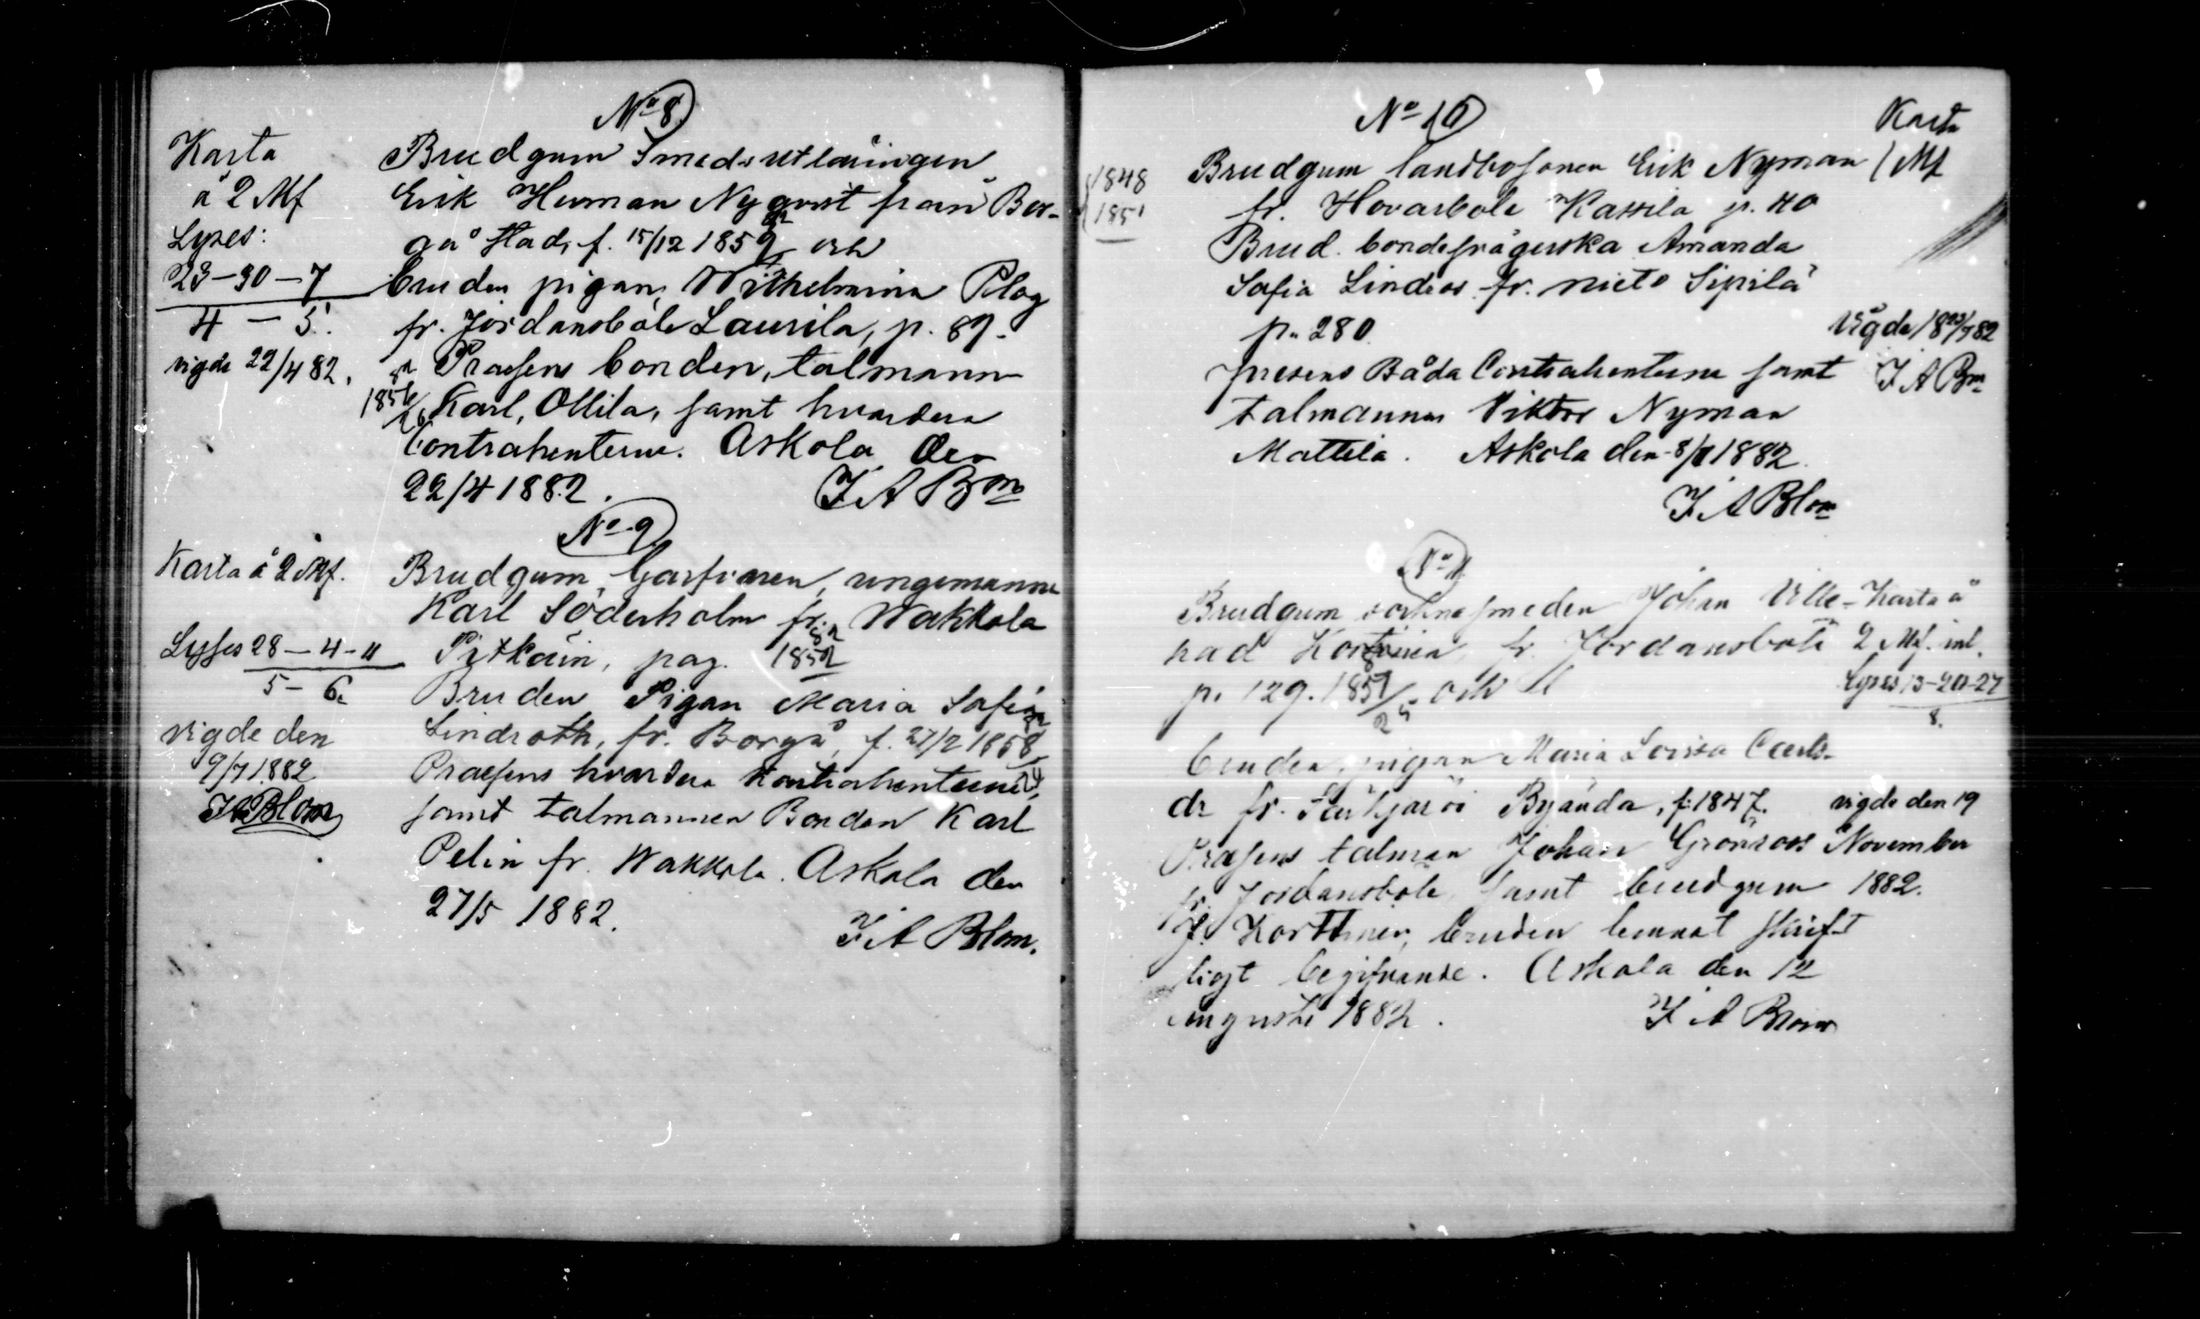 No 8
Karta
à 2 Mf
Lyses:
23-30-7
4 - 5.
vigde 22/4 82.
Brudgum Smedsutläringen
Erik Herman Nyqvist från Bor-
gå stad, f. 15/12 1859 och
bruden pigan Wilhelmina Plog
fr. Jordansböle Laurila, p. 89.
Præsens bonden, talmann
1856
Karl Ollila, samt hvardera
Contrahenterne. Askola den
22/4 1882.
F A Bm
No 9
Karta à 2 Mf.
Lyses 28-4-11
5-6
vigde den
9/7 1882
F A Blom
Brudgum, ungemannen
Karl Söderholm fr. Wakkola
Pitkäin, pag. 1852
Bruden Pigan Maria Sofia
Lindroth, fr. Borgå, f. 27/2 1858
Præsens hvardera Kontrahenterne
samt talmannen Bonden Karl
Pelin fr. Wakkola. Askola den
27/5 1882.
F A Blom.
No 10
Karta
1 Mf
1848
1851
Brudgum landbosonen Erik Nyman
fr. Hovarböle Kassila p. 40
Brud. Amanda
Sofia Lindros fr. Nieto Sipilä
p. 280
vigde 18 82
F A Bm
presens Båda Contrahenterne samt
talmannen Viktor Nyman
Mattila. Askola den 8/ 1882.
F A Blom
No 11
Brudgum socknesmeden Johan Ville-
had Korttinen, fr. Jordansböle
p. 129. 1859 och
25
Karta à
2 Mf. inl.
Lyses 13-20-27
8.
bruden, pigan Maria Lovisa Carls-
dr fr. Byända, f. 1847.
Præsens talman Johan Grönroos
fr. Jordansböle, samt brudgum
J. Korttinen, bruden lemnat skrift-
ligt begifvande. Askola den 12
Augusti 1882.
F A Blom
vigde den 19
November
1882.